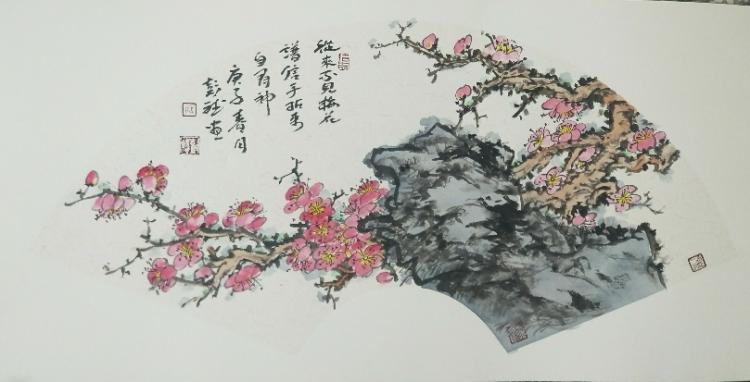 從來不見梅花
譜信手拈來
自有神
庚子春月
彭
畫